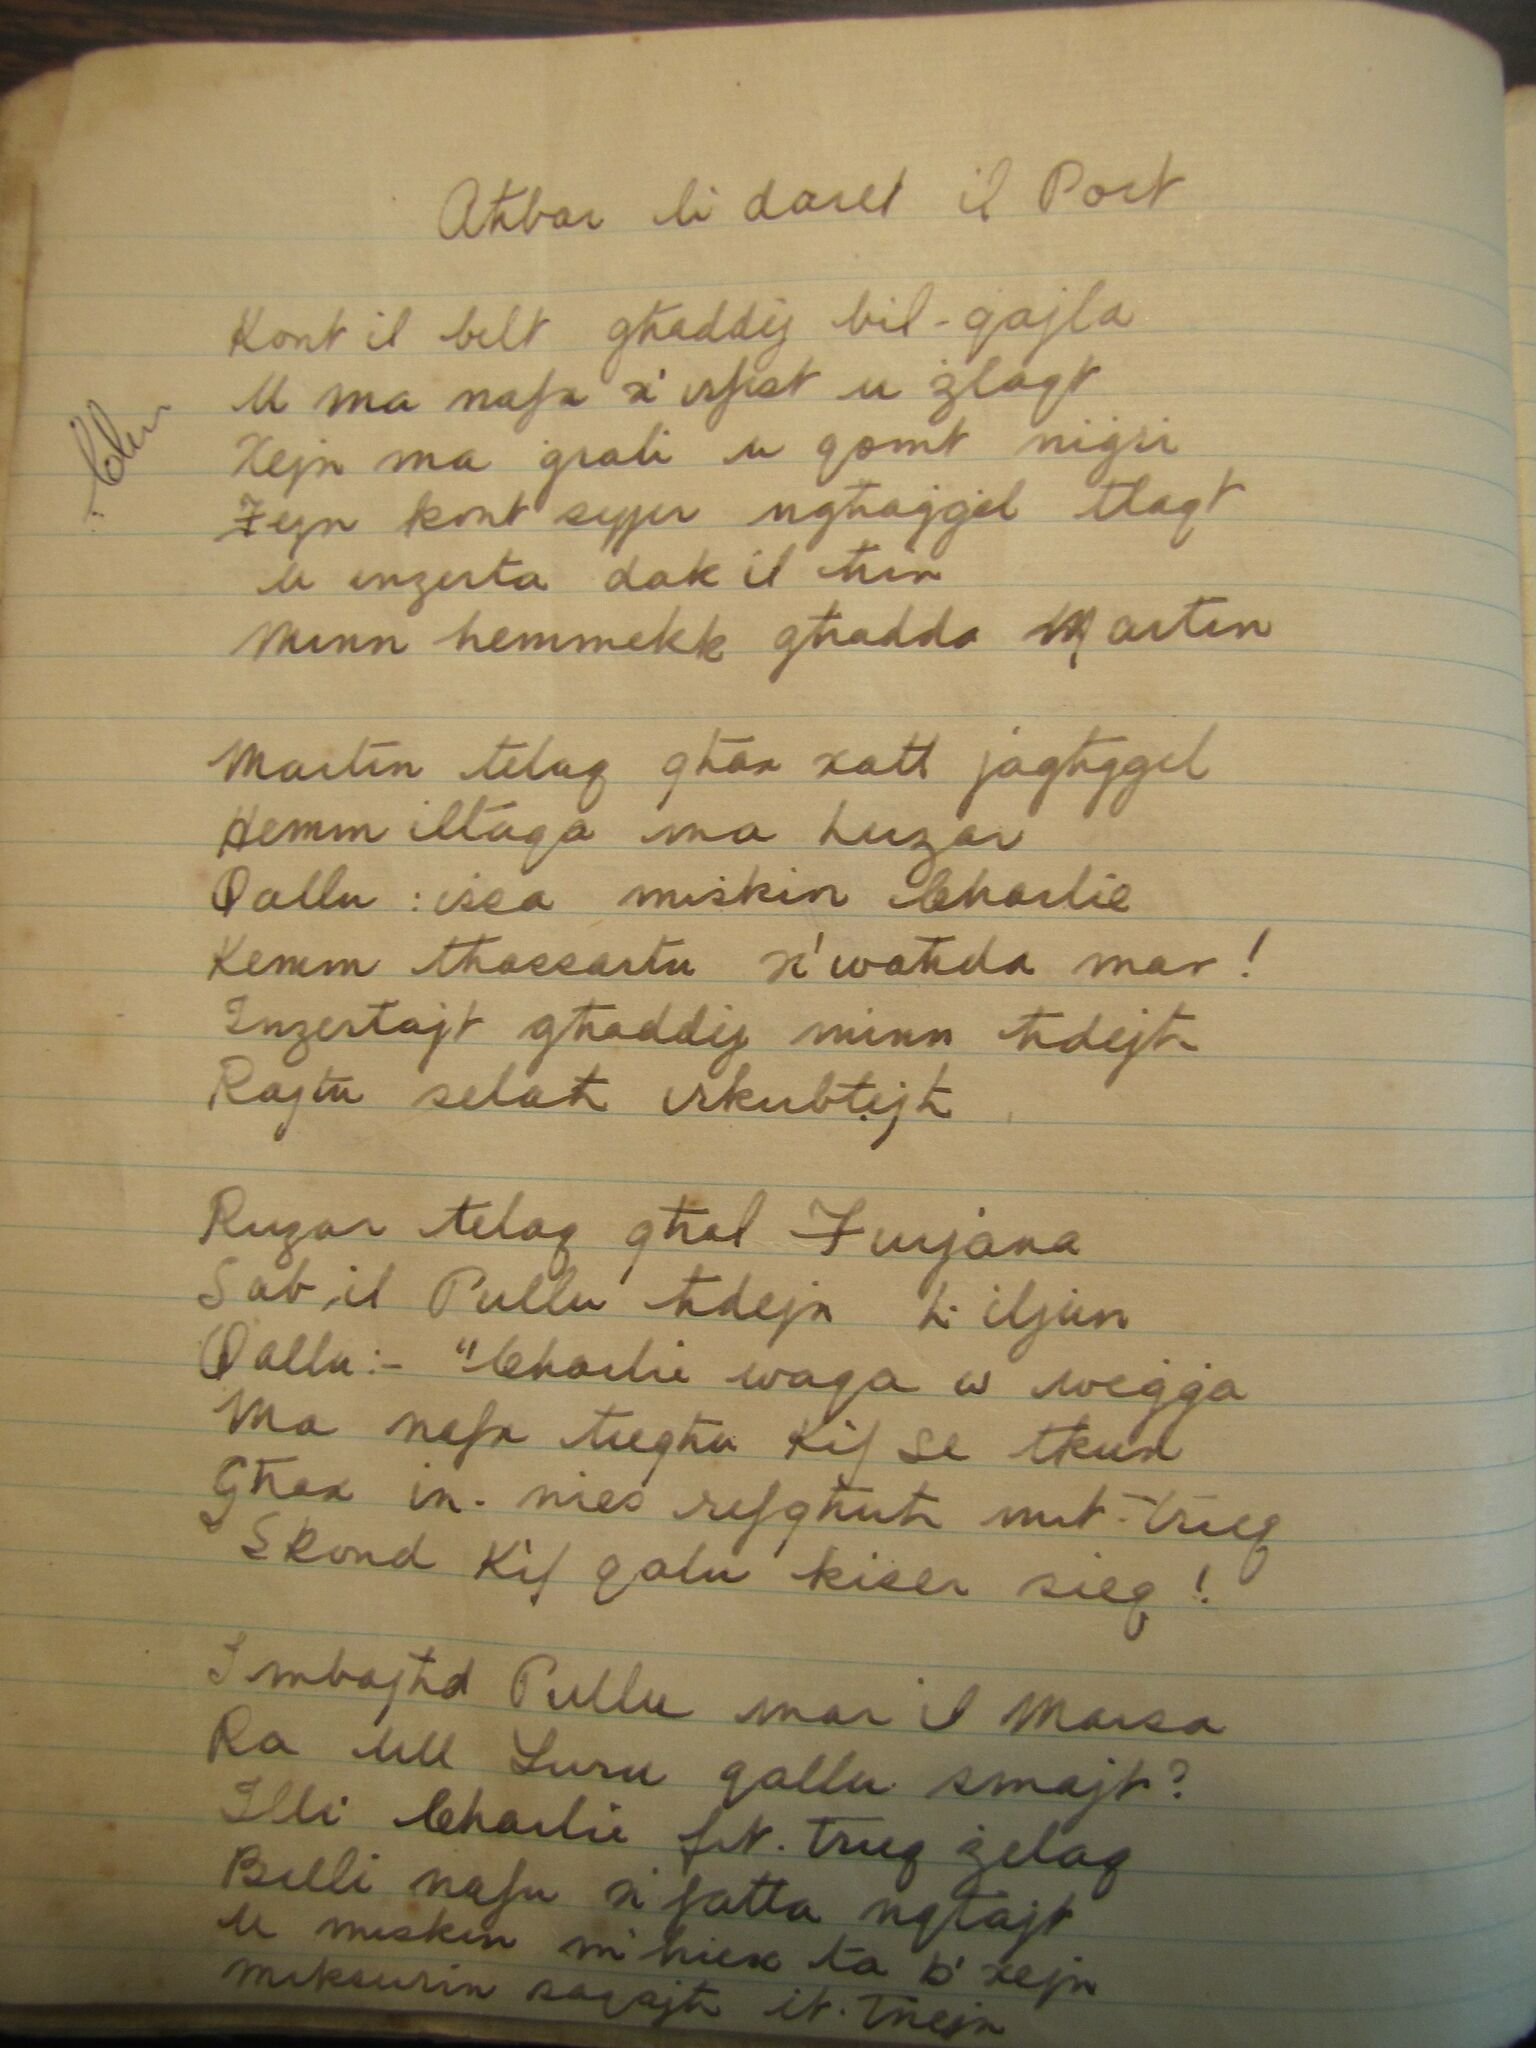 Aħbar li daret il Port
Kont il belt għaddej bil-qajla
U ma nafx x' irfist u żlaqt
Xejn ma ġrali u qomt niġri
Fejn kont sejjer ngħaġġel tlaqt
U inzerta dak il ħin
Minn hemmekk għadda Martin
Martin telaq għax xatt jagħġġel
Hemm iltaqa ma Ruzar
Qallu : issa miskin Charlie
Kemm tħassartu x'waħda mar !
Inzertajt għaddej minn ħdejh
Rajtu selaħ irkubtejh
Ruzar telaq għal Furjana
Sab il Pullu ħdejn l-iljun
Qallu :- "Charlie waqa w weġġa
Ma nafx tiegħu Kif se tkun
Għax in-nies refgħuh mit-triq
Skond Kif qalu kiser sieq !
Imbajħd Pullu mar il Marsa
Ra lill Luru qallu smajt?
Illi Charlie fit-Trieq żelaq
Billi nafu x'ħatta nqtajt
U miskin m'hiex ta b'xejn
miksurin saqajh it-Tnejn